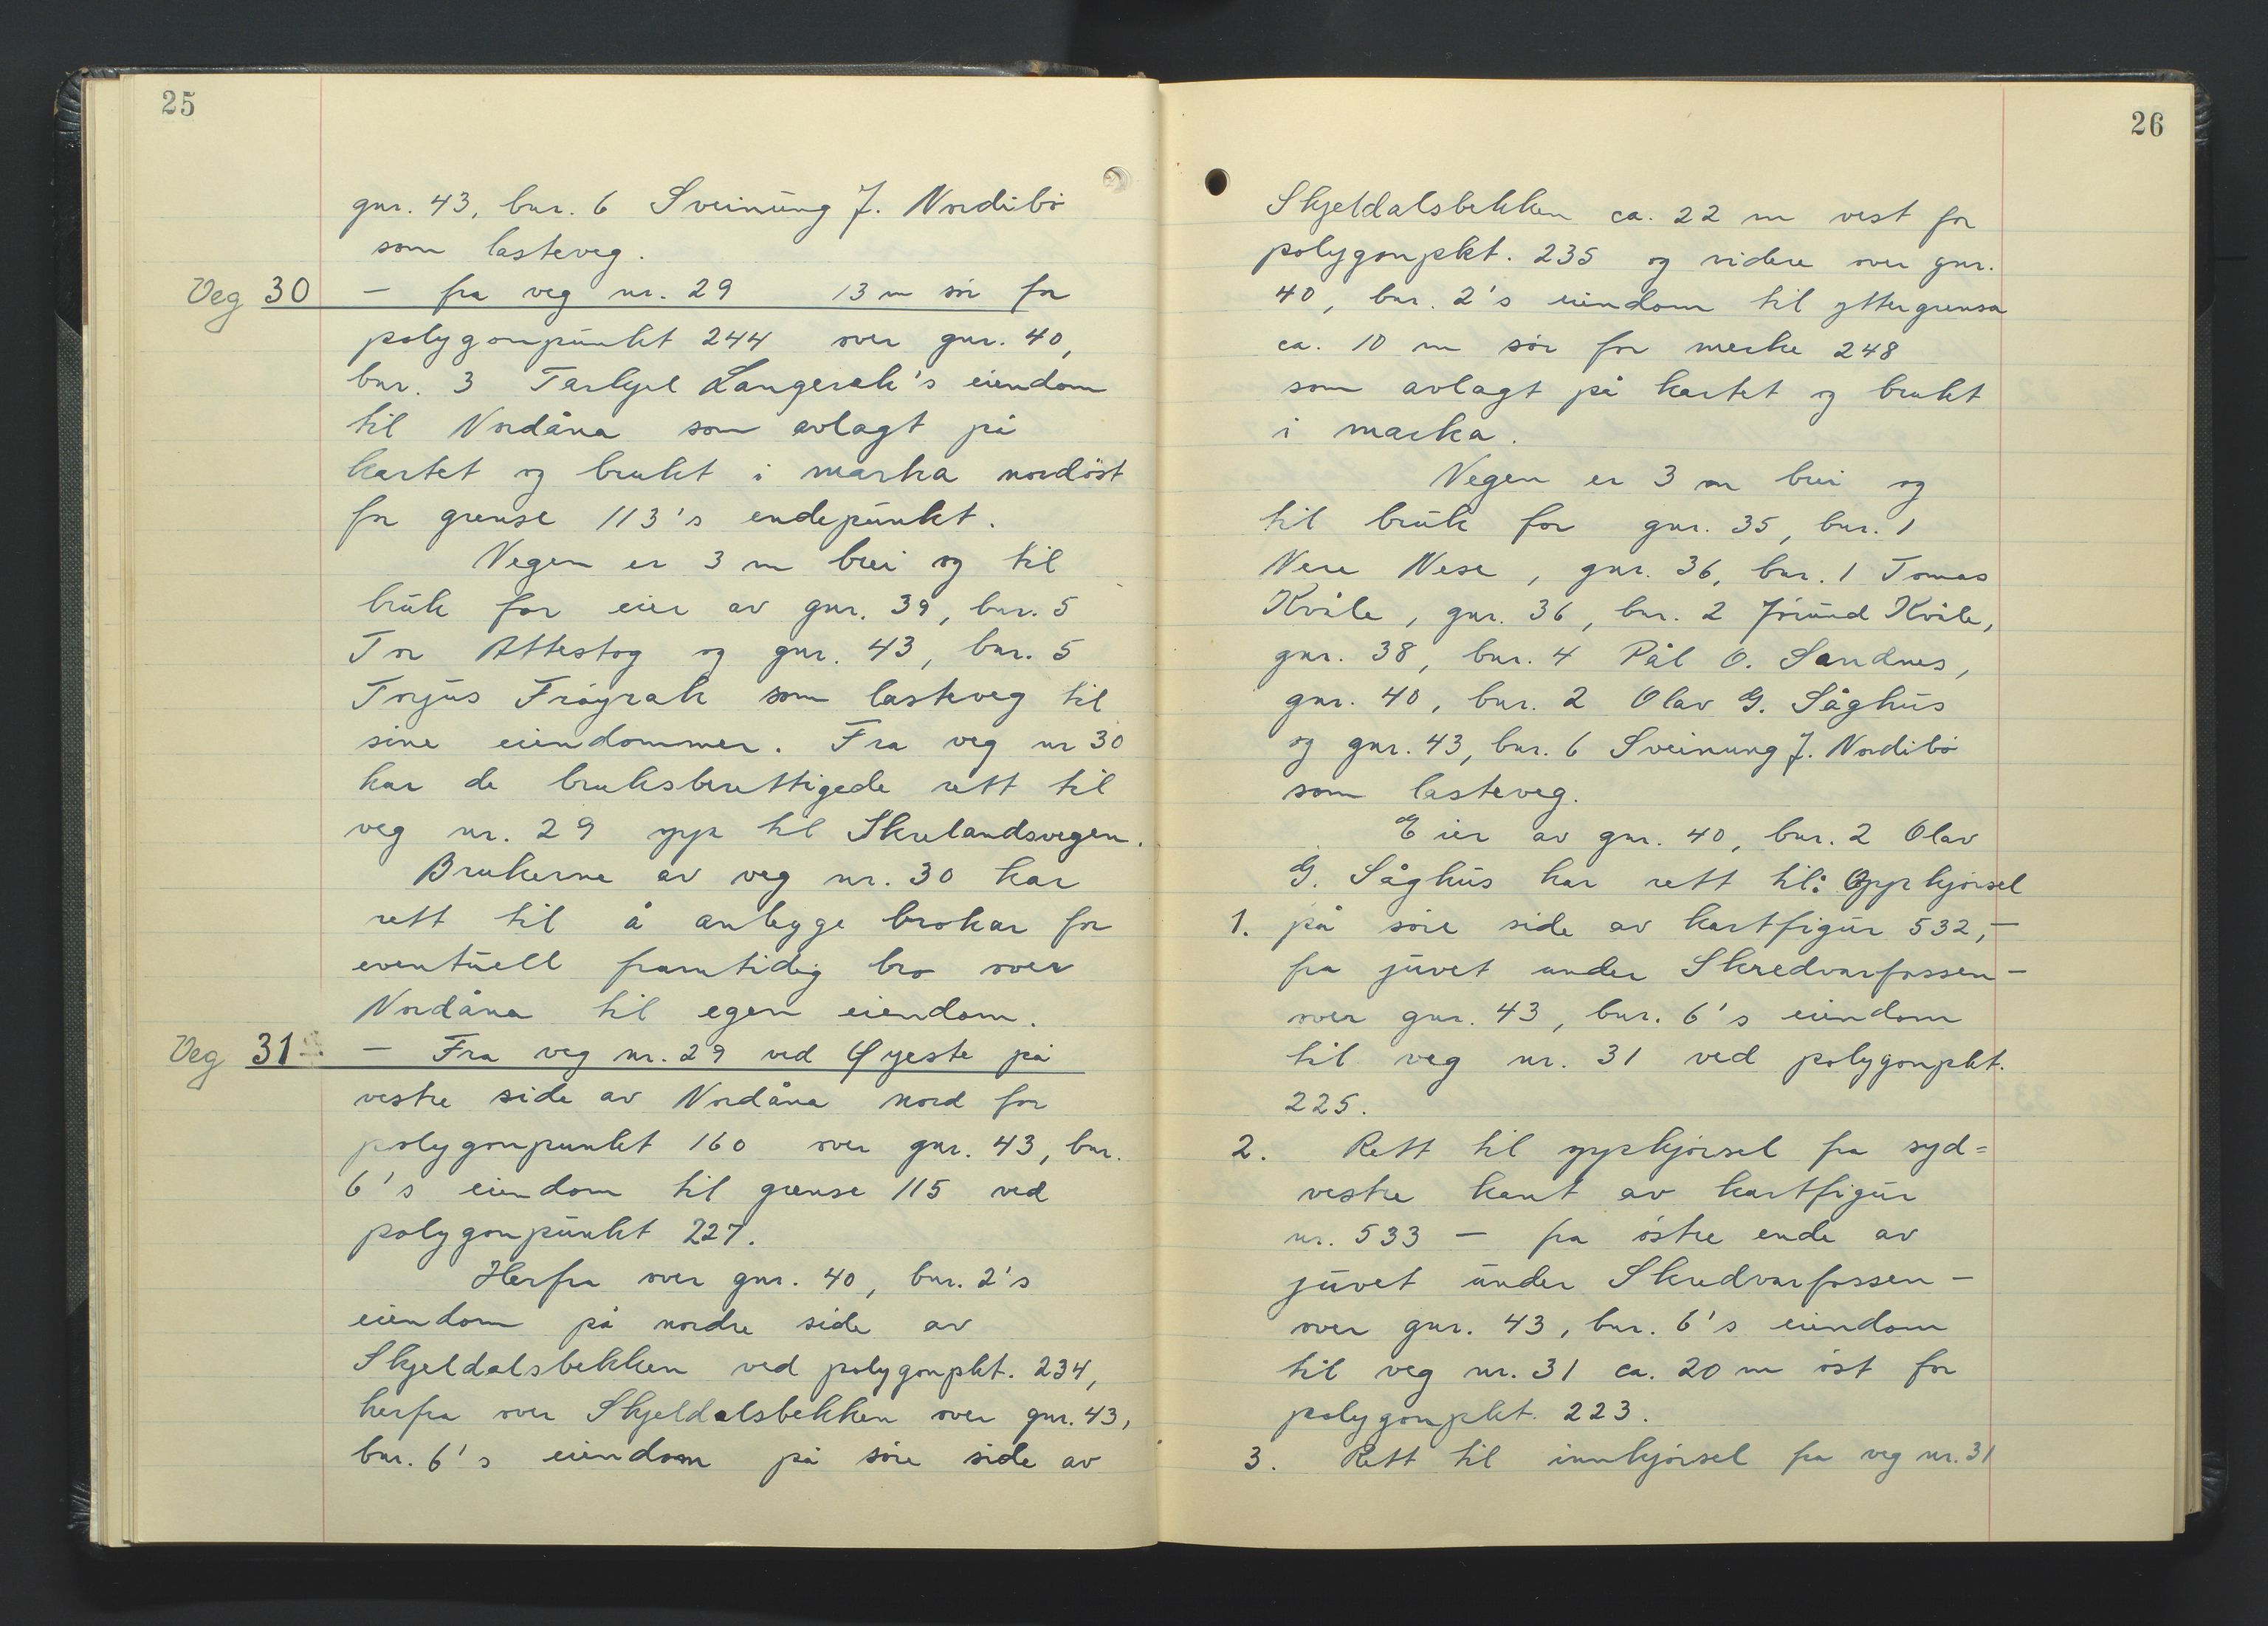 25
gnr. 43, bnr. 6 Sveinung J. Nordibö
som lasteveg.
Veg 30 — fra veg nr. 29 13 m sör for
polygonpunkt 244 over gnr. 40,
bnr. 3 Tarkjel Langerak's eiendom
til Nordåna som avlagt på
kartet og brukt i marka nordöst
for grense 113's endepunkt.
Vegen er 3 m brei og til
bruk for eier av gnr. 39, bnr. 5
Tor Attestog og gnr. 43, bnr. 5
Torjus Fröyrak som lasteveg til
sine eiendommer. Fra veg nr 30
har de bruksberettigede rett til
veg nr. 29 opp til Skrelandsvegen.
Brukerne av veg nr. 30 har
rett til å anlegge brokar for
eventuell framtidig bro over
Nordåna til egen eiendom.
Veg 31 — Fra veg nr. 29 ved Öyeste på
vestre side av Nordåna nord for
polygonpunkt 160 over gnr. 43, bnr.
6's eiendom til grense 115 ved
polygonpunkt 227.
Herfra over gnr. 40, bnr. 2's
eiendom på nordre side av
Skjeldalsbekken ved polygonpkt. 234,
herfra over Skjeldalsbekken over gnr. 43,
bnr. 6's eiendom på söre side av
26
Skjeldalsbekken ca. 22 m vest for
polygonpkt. 235 og videre over gnr.
40, bnr. 2's eiendom til yttergrensa
ca. 10 m sör for merke 248
som avlagt på kartet og brukt
i marka.
Vegen er 3 m brei og
til bruk for gnr. 35, bnr. 1
Nere Nese, gnr. 36, bnr. 1 Tomas
Kvåle, gnr. 36, bnr. 2 Jörund Kvåle,
gnr. 38, bnr. 4 Pål O. Sandnes,
gnr. 40, bnr. 2 Olav G. Såghus
og gnr. 43, bnr. 6 Sveinung J. Nordibö
som lasteveg.
Eier av gnr. 40, bnr. 2 Olav
G. Såghus har rett til: Oppkjörsel
1. på söre side av kartfigur 532, —
fra juvet under Skredvarfossen —
over gnr. 43, bnr. 6's eiendom
til veg nr. 31 ved polygonpkt.
225.
2. Rett til oppkjörsel fra syd=
vestre kant av kartfigur
nr. 533 — fra östre ende av
juvet under Skredvarfossen —
over gnr. 43, bnr. 6's eiendom
til veg nr. 31 ca. 20 m öst for
polygonpkt. 223.
3. Rett til innkjörsel fra veg nr. 31